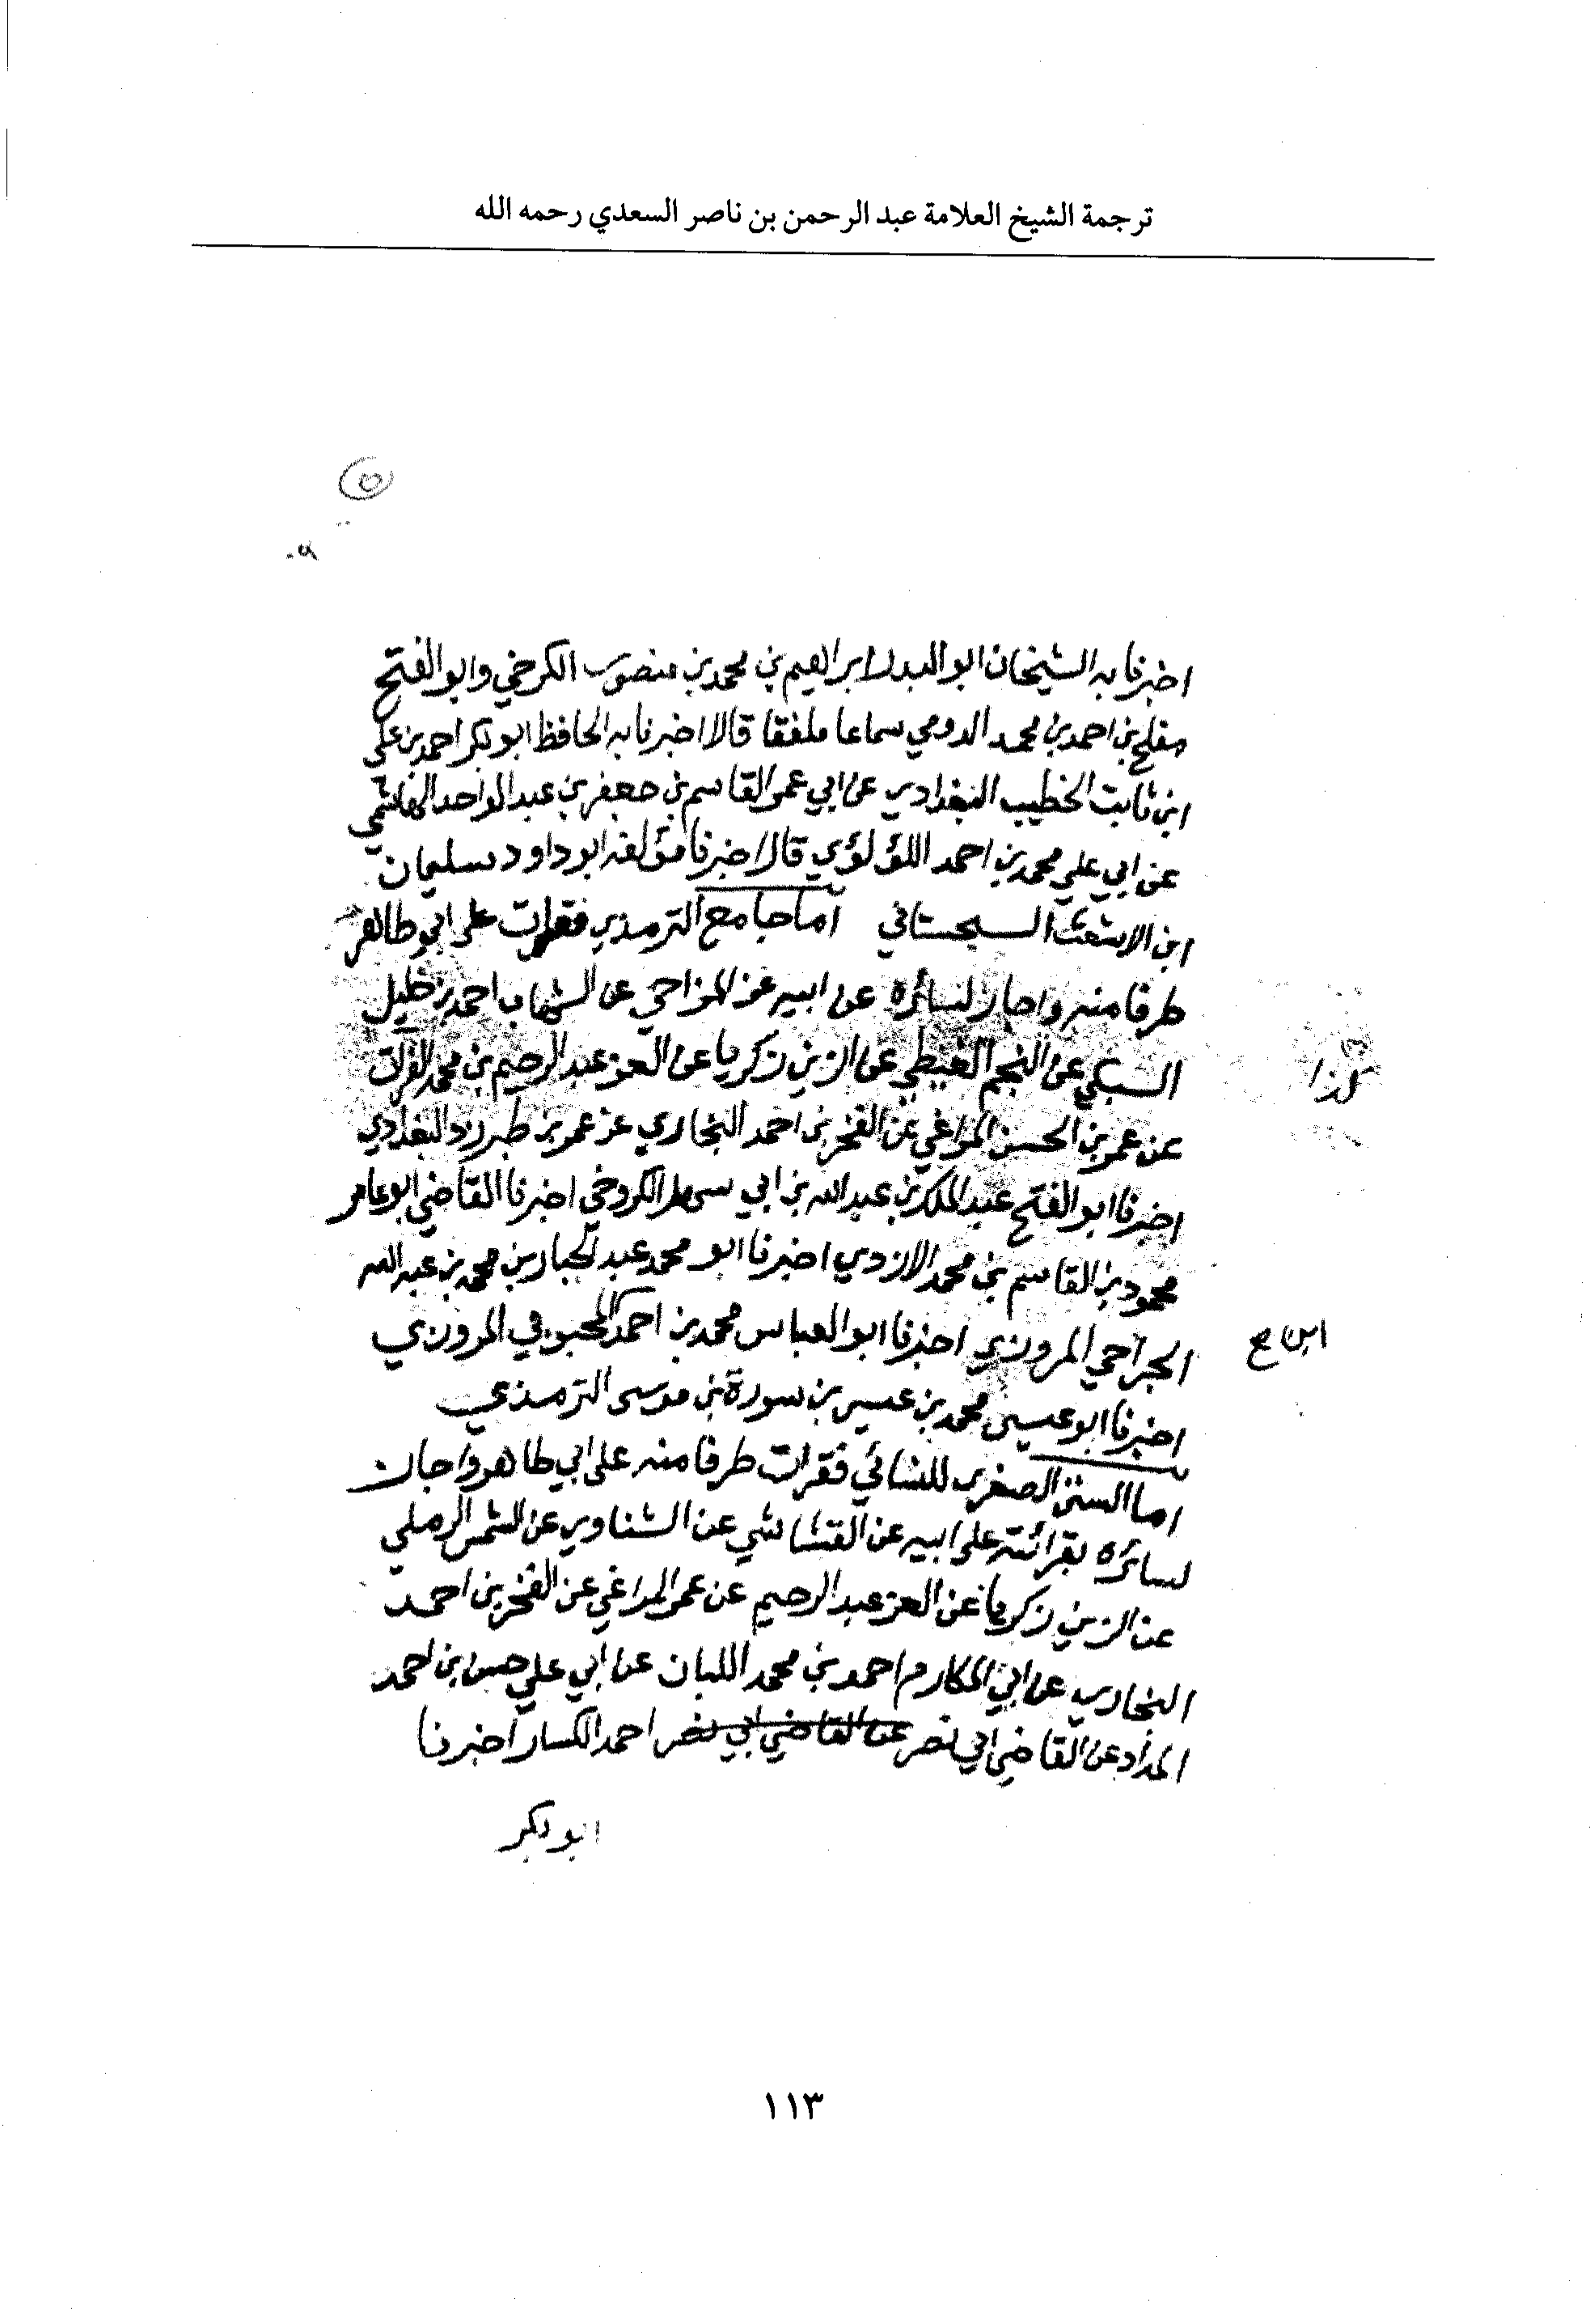 ترجمة الشيخ العلامة عبد الرحمن بن ناصر السعدي رحمه الله
٥
اخبرنا به الشيخان ابو البدر ابراهيم بن محمد بن منصور الكرخي وابو الفتح
مفلح بن احمد بن محمد الدومي سماعا ملفقا قالا اخبرنا به الحافظ ابو بكر احمد بن علي
ابن ثابت الخطيب البغدادي عن ابي عمر القاسم بن جعفر بن عبد الواحد الهاشمي
عن ابي علي محمد بن احمد اللؤلؤي قال اخبرنا مؤلفه ابو داود سليمان
ابن الاشعث السجستاني اما جامع الترمذي فقرات على ابي طاهر
طرفا منه واجاز لسائره عن ابيه عن المزاحي عن الشهاب احمد بن خليل
السبكي عن النجم الغيطي عن الزين زكريا عن العز عبد الرحيم بن محمد الفرات
كذا
عن عمر بن الحسن المراغي عن الفخر بن احمد البخاري عن عمر بن طبرزد البغدادي
اخبرنا ابو الفتح عبد الملك بن عبد الله بن ابي سهل الكروخي اخبرنا القاضي ابو عامر
محمود بن القاسم بن محمد الازدي اخبرنا ابو محمد عبد الجبار بن محمد بن عبد الله
الجراحي المروزي اخبرنا ابو العباس محمد بن احمد المحبوبي المروزي
ابن ص
اخبرنا ابو عيسى محمد بن عيسى بن سورة بن موسى الترمذي
اما السنن الصغرى للنسائي فقرات طرفا منه على ابي طاهر واجاز
لسائره بقرائته على ابيه عن القشاشي عن الشناوي عن الشمس الرملي
عن الزين زكريا عن العز عبد الرحيم عن عمر المراغي عن الفخر بن احمد
البخاري عن ابي المكارم احمد بن محمد اللبان عن ابي علي حسن بن احمد
الحداد عن القاضي ابي نصر عن القاضي ابي نصر احمد الكسار اخبرنا
ابو بكر
١١٣